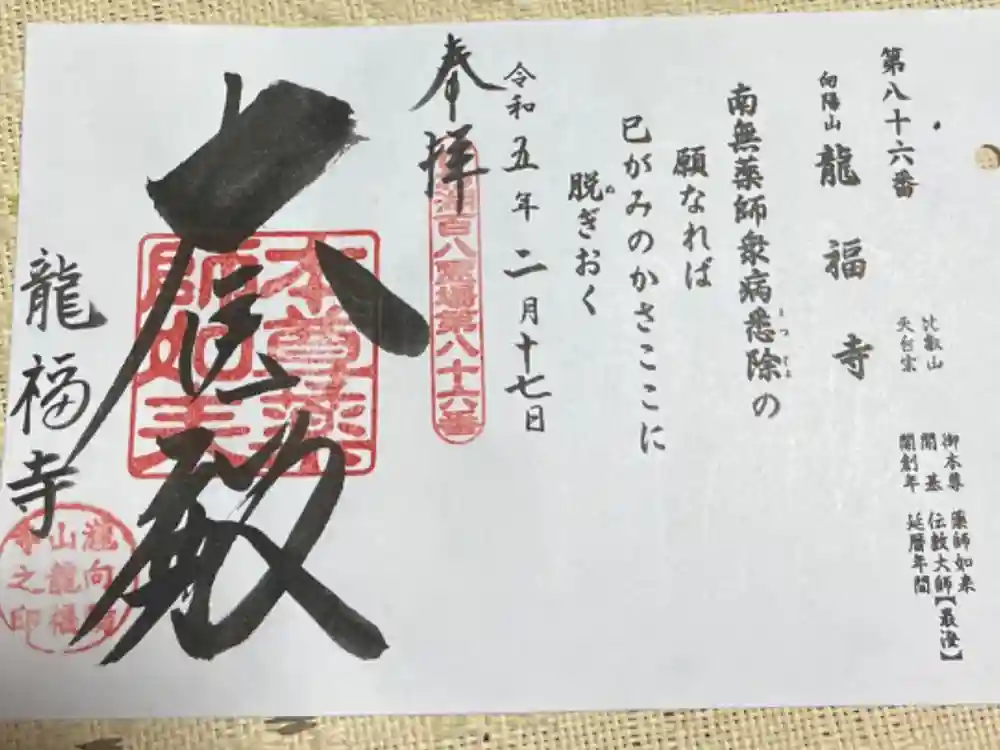 第八十六番
向陽山 龍福寺
比叡山
天台宗
御本尊 薬師如来
開基 伝教大師【最澄】
開創年 延暦年間
南無薬師衆病悉除の
願なれば
已がみのかさここに
脱ぎおく
令和五年二月十七日
奉拝
湖百八霊場第八十六番
本尊薬
師如来
殿
龍福寺
瀧向陽
山龍福
寺之印